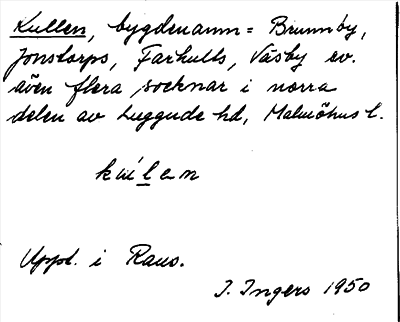 Kullen, bygdenamn = Brunnby,
Jonstorps, Farhults, Väsby ev.
även flera socknar i norra
delen av Luggude hd, Malmöhus l.
Uppt. i Raus.
I. Ingers 1950